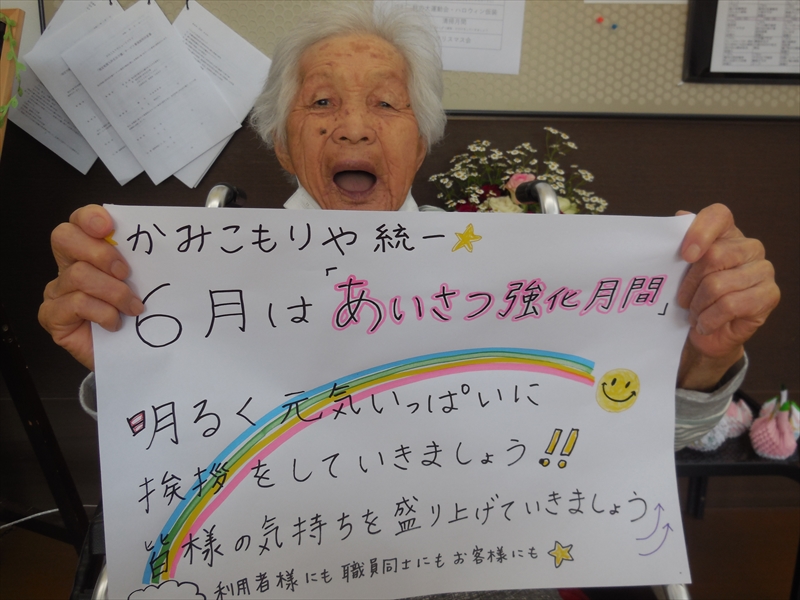 かみこもりや統一
6月は「あいさつ強化月間」
明るく元気いっぱいに
挨拶をしていきましょう!!
皆様の気持ちを盛り上げていきましょう
利用者様にも職員同士にもお客様にも